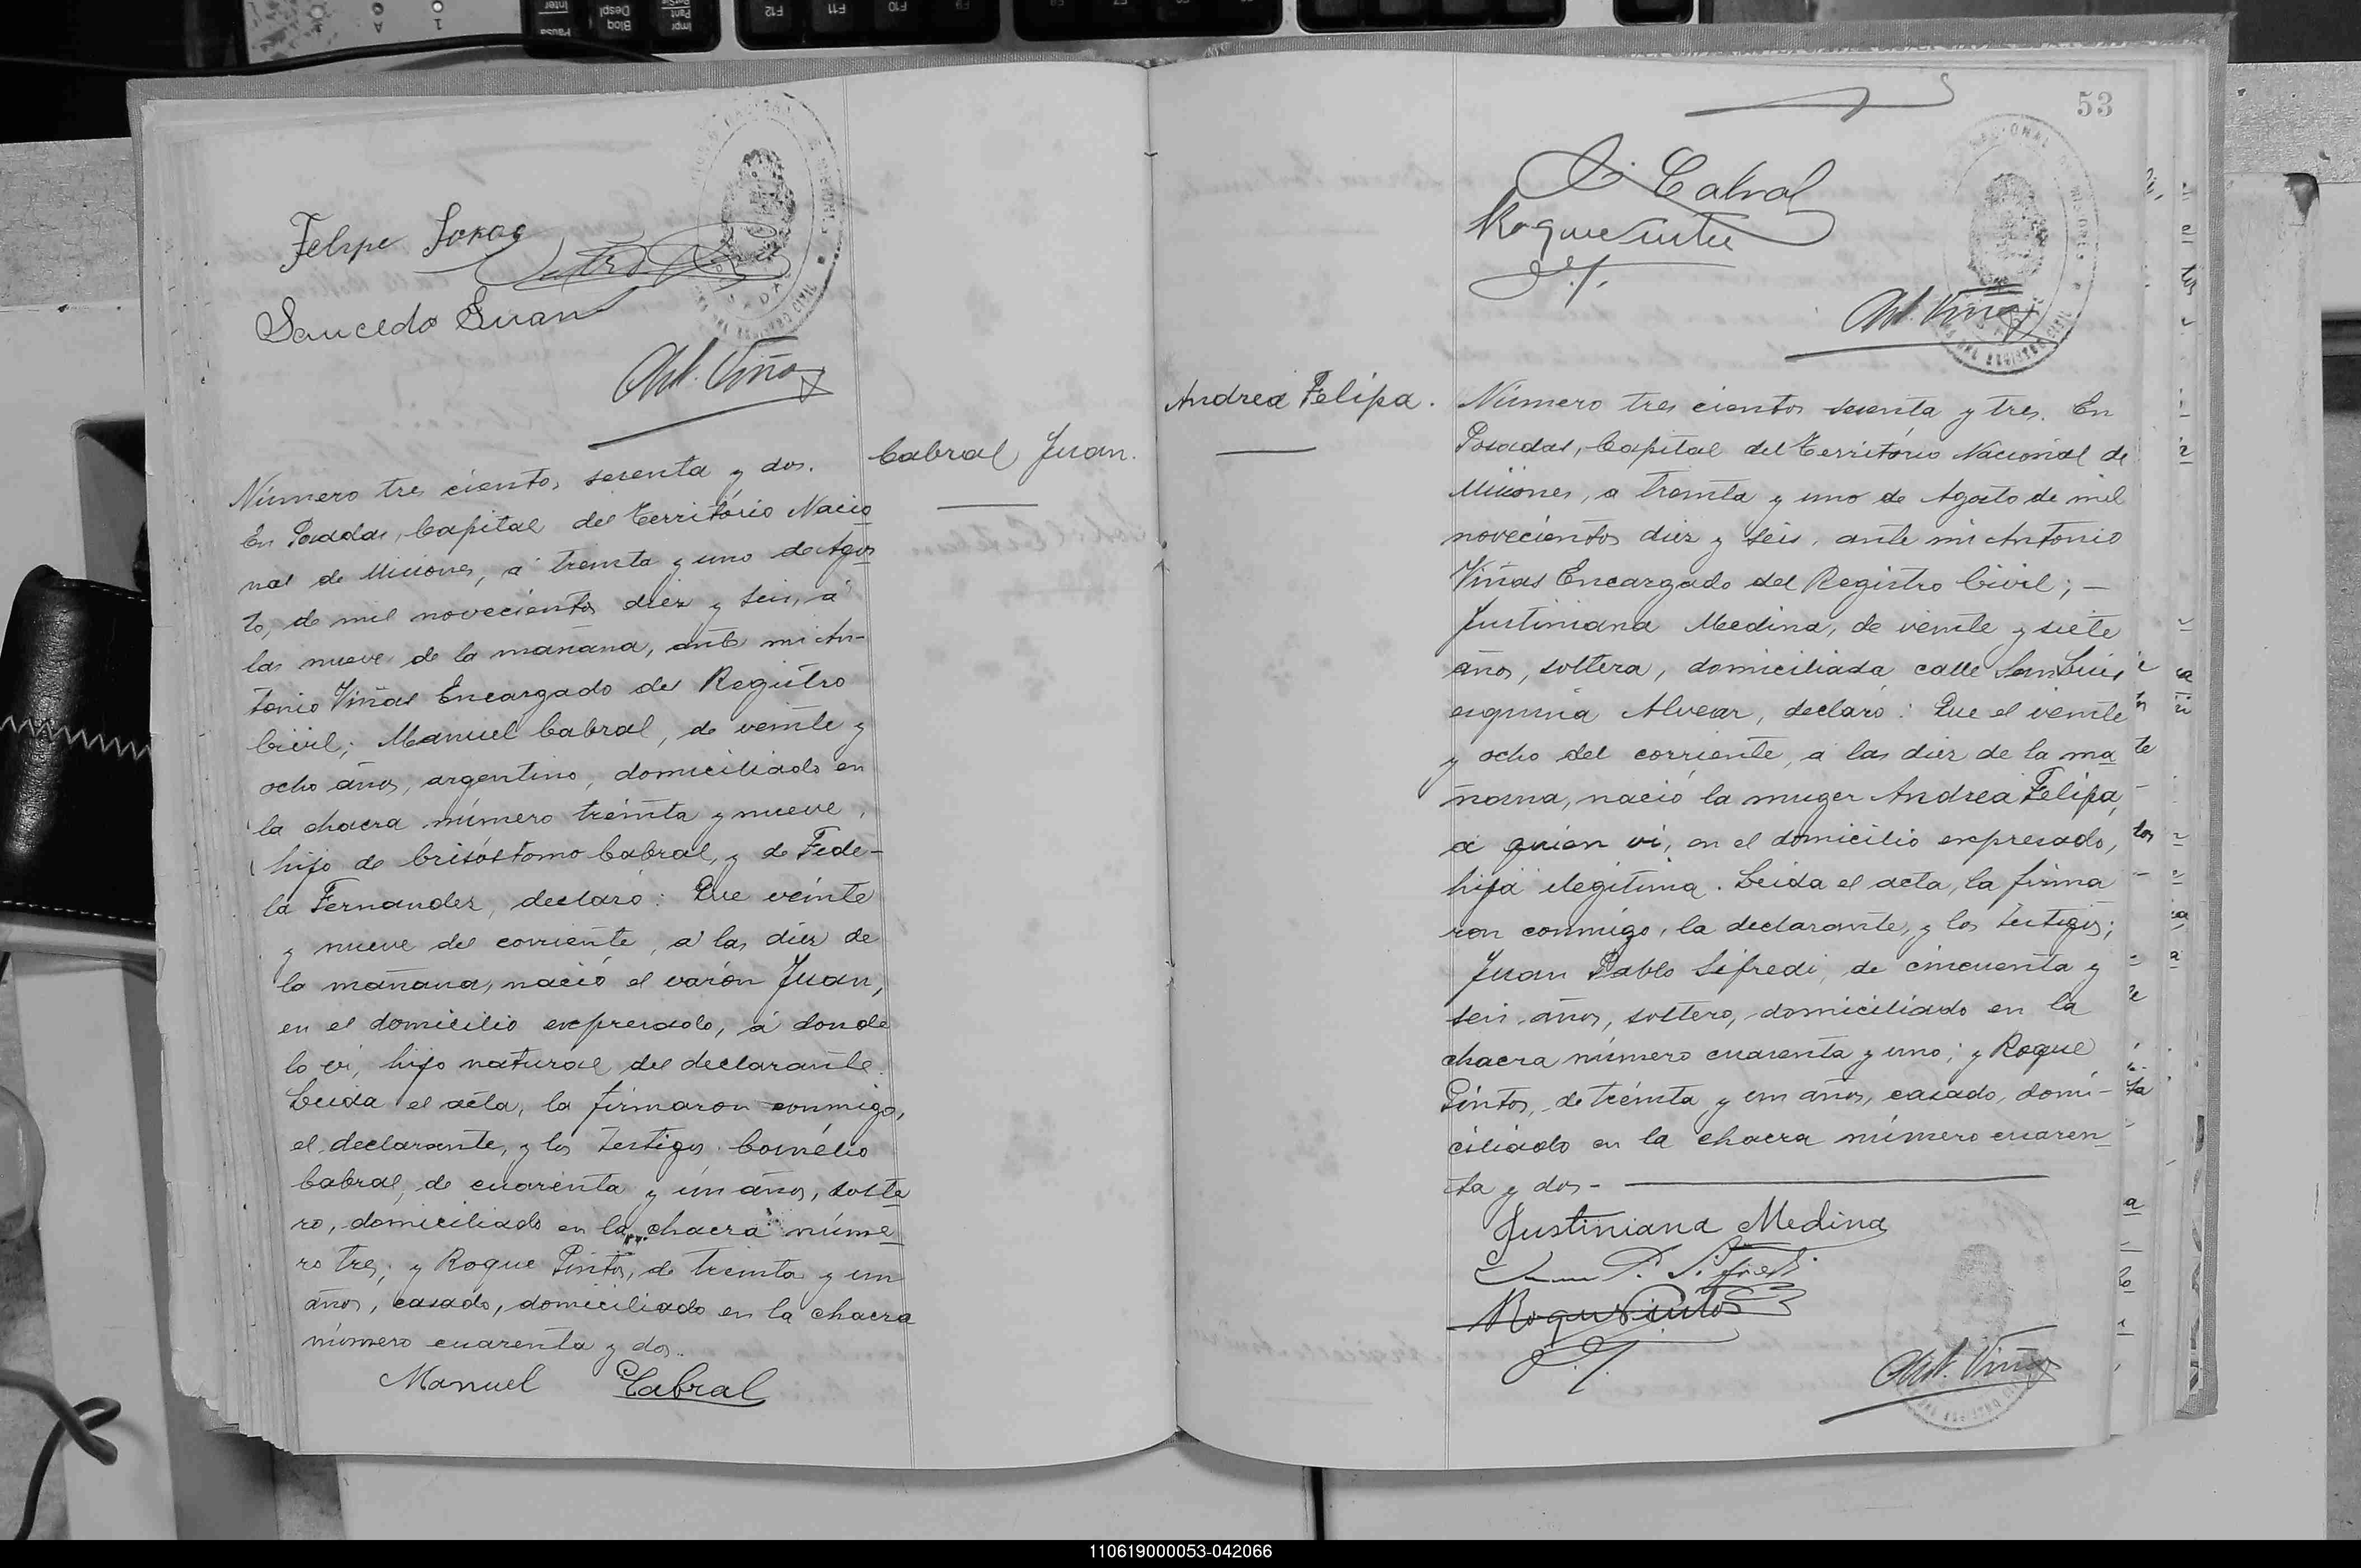 Felipe
Saucedo Juan
Ant. Viñas
Cabral Juan.
Número tres cientos sesenta y dos.
En Posadas, Capital del Território Nacio
nal de Misiones, á treinta y uno de Agos
to, de mil novecientos diez y seis, á
las nueve de la mañana, ante mi An-
tonio Viñas Encargado del Registro
Civil; Manuel Cabral, de veinte y
ocho años, argentino, domiciliado en
la chacra número treinta y nueve,
hijo de Crisóstomo Cabral, y de Fide-
la Fernandez, declaró: Que veinte
y nueve del corriente, a las diez de
la mañana, nació el varón Juan,
en el domicilio expresado, á donde
lo vi, hijo natural del declarante.
Leida el acta, la firmaron conmigo,
el declarante, y los testigos Cornélio
Cabral, de cuarenta y un años, solte
ro, domiciliado en la chacra núme
ro tres; y Roque Pintos, de treinta y un
años, casado, domiciliado en la chacra
número cuarenta y dos.
Manuel Cabral
53
C. Cabral
Roque Pintos
Ant. Viñas
Andrea Felipa.
Número tres cientos sesenta y tres. En
Posadas, Capital del Território Nacional de
Misiones, a treinta y uno de Agosto de mil
novecientos diez y seis, ante mi Antonio
Viñas Encargado del Registro Civil; —
Justiniana Medina, de veinte y siete
años, soltera, domiciliada calle San Luis
esquina Alvear, declaró: Que el veinte
y ocho del corriente, a las diez de la ma
ñana, nació la muger Andrea Felipa,
a quien vi, en el domicilio expresado,
hija ilegitima. Leida el acta, la firma
ron conmigo, la declarante, y los testigos;
Juan Pablo Sifredi, de cincuenta y
seis años, soltero, domiciliado en la
chacra número cuarenta y uno; y Roque
Pintos, de treinta y un años, casado, domi-
ciliado en la chacra número cuaren
ta y dos -
Justiniana Medina
Juan P. Sifredi
Roque Pintos
Ant. Viñas
110619000053-042066